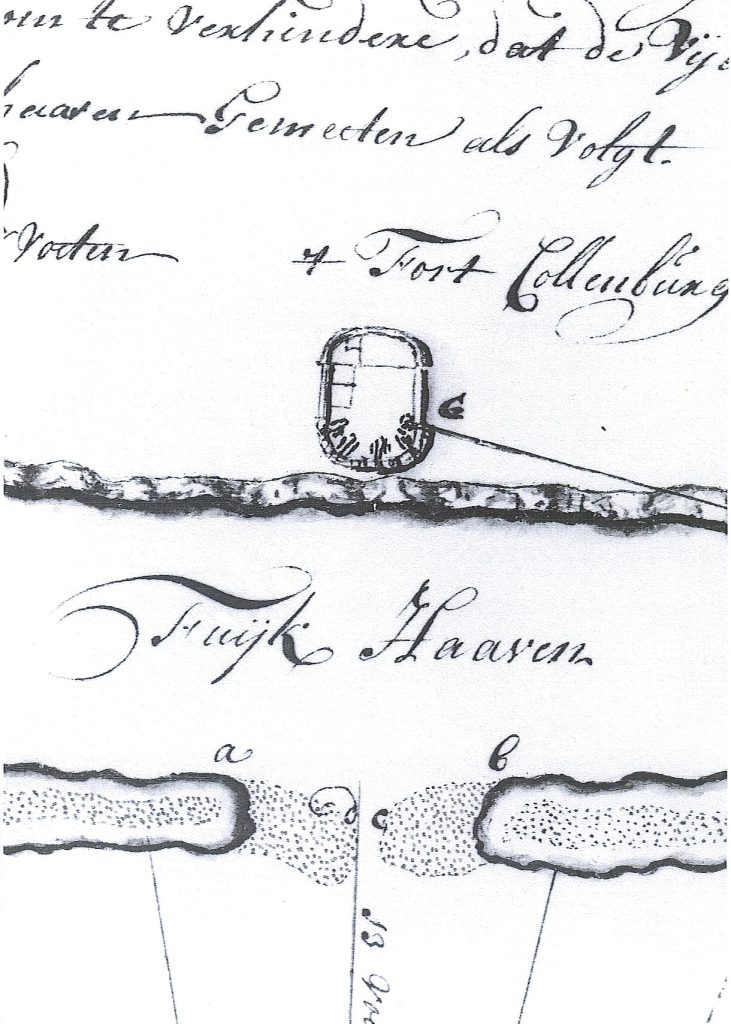 te verhindere, dat de Vije
haaven Gemeeten als Volgt.
Voeten
't Fort Collenburg
G
Fuijk Haaven
a
b
d
c
13 Voe